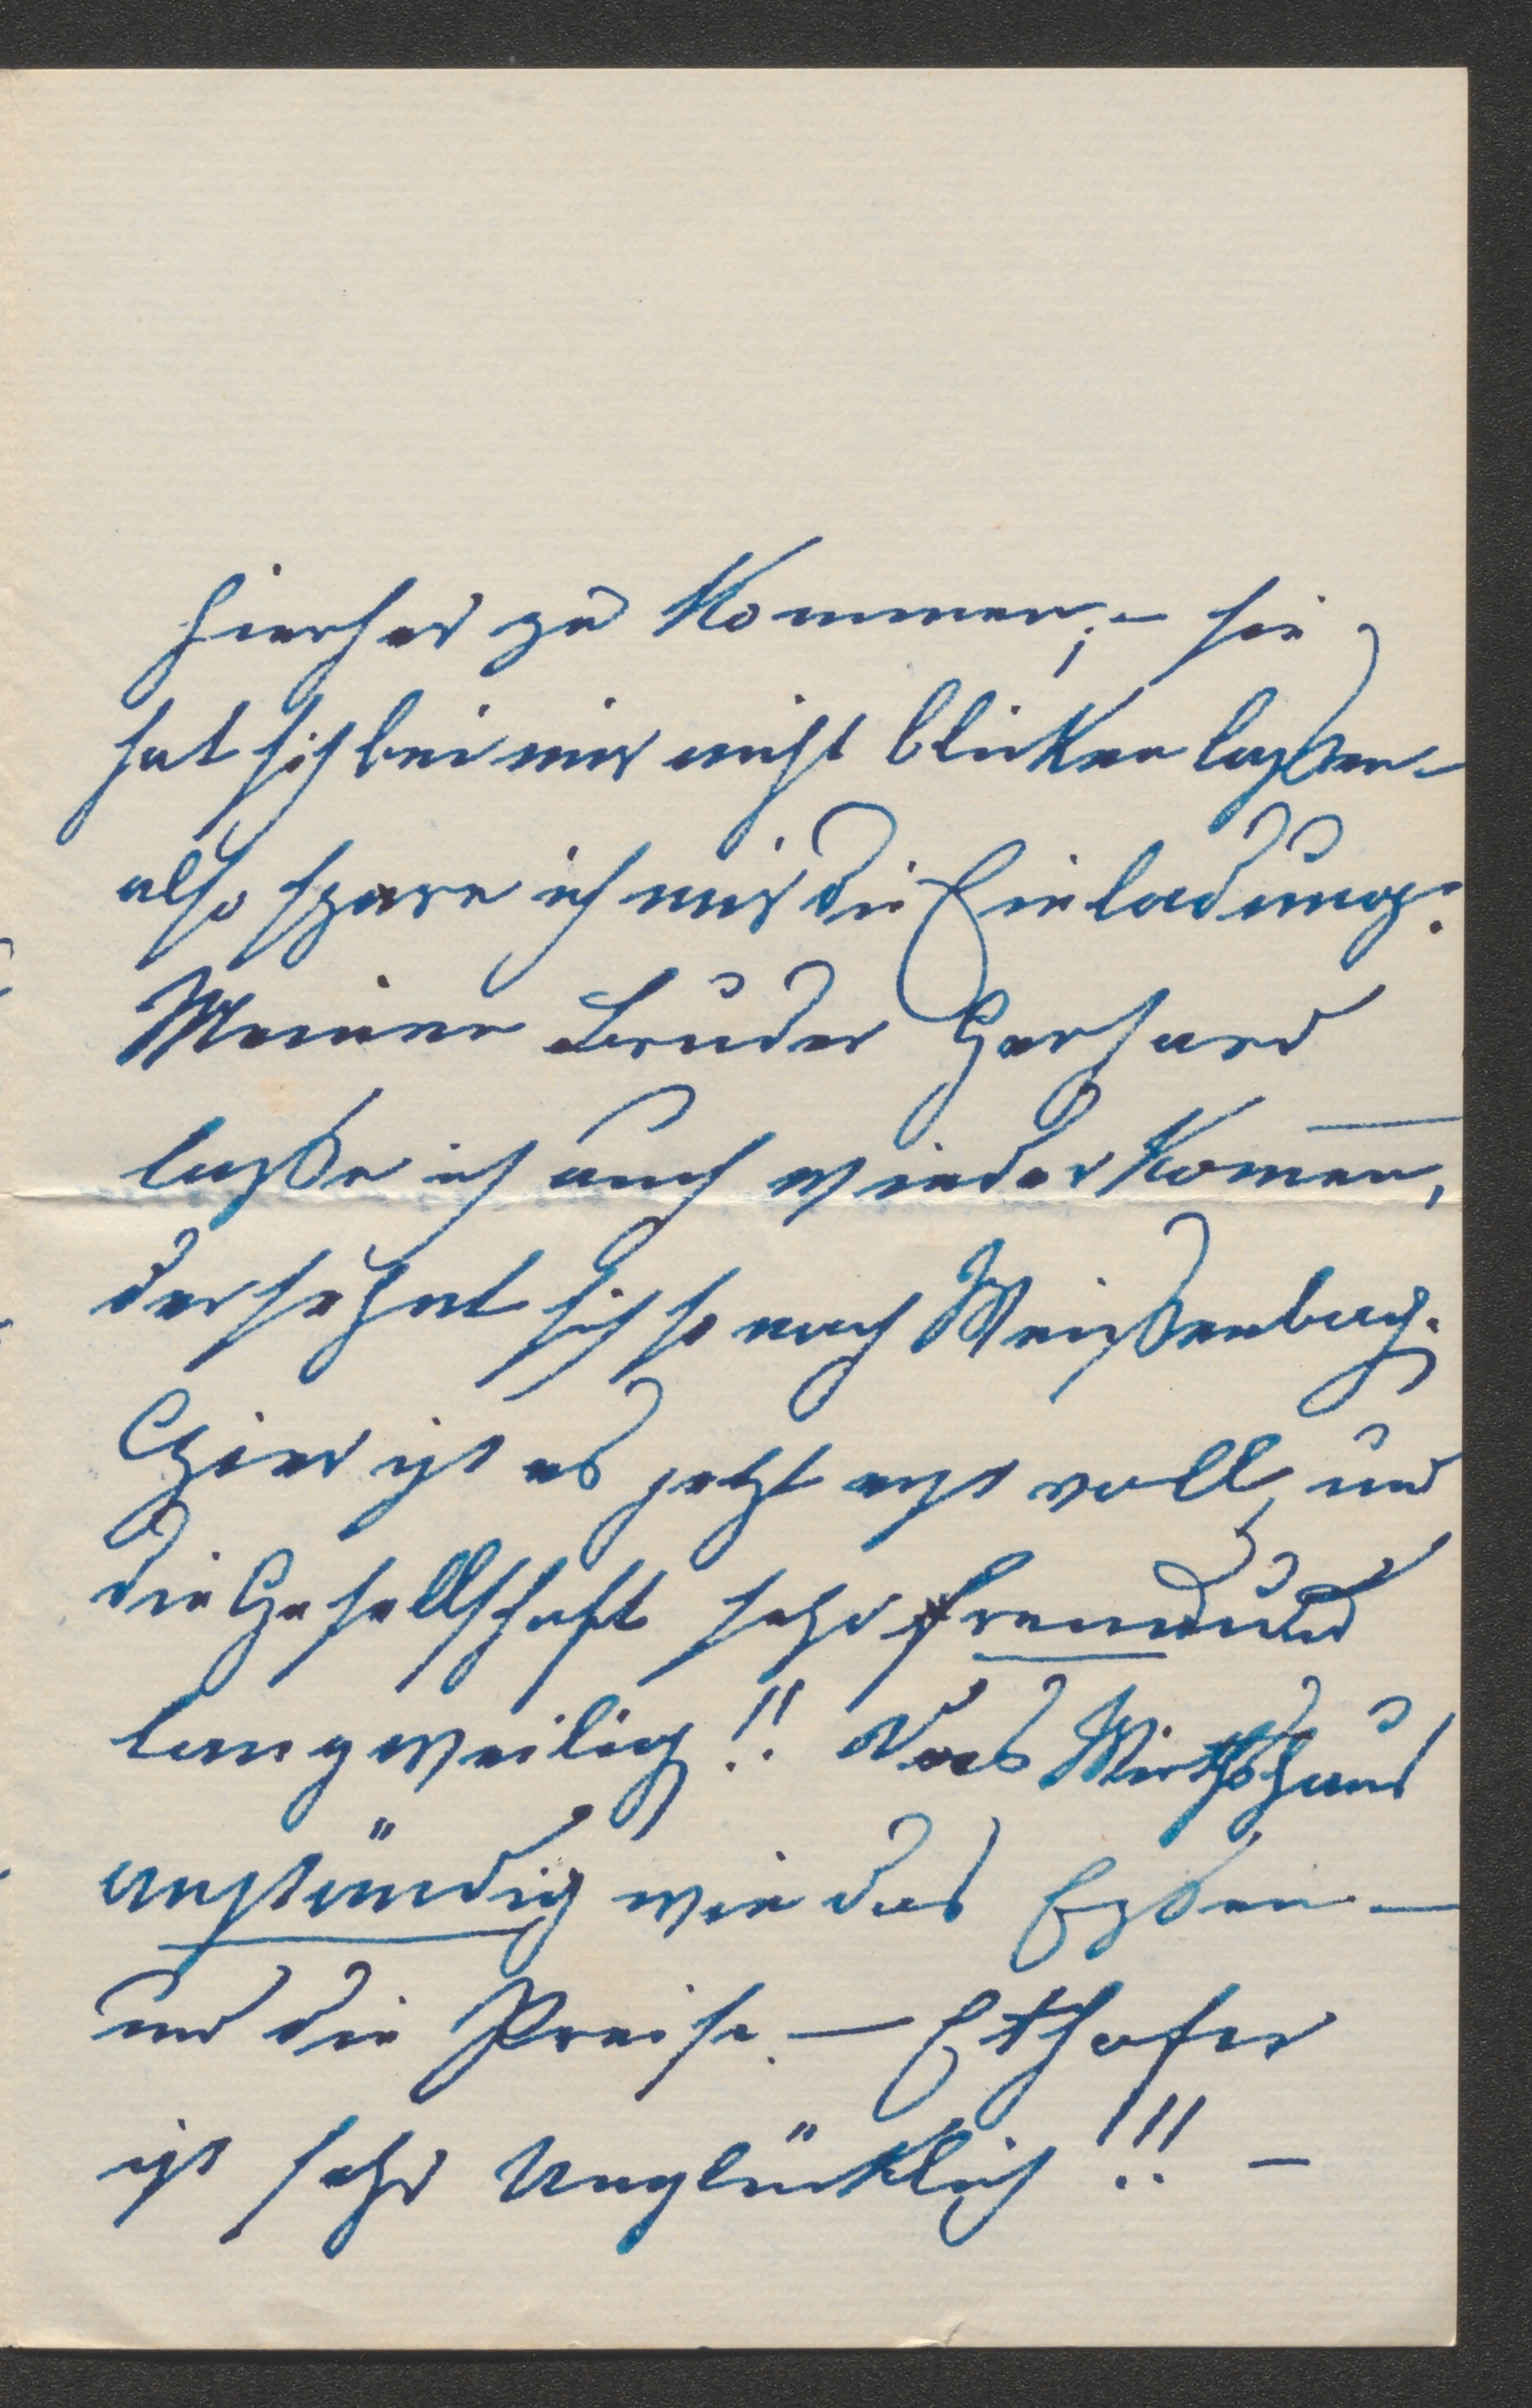 hierher zu kommen; – sie
hat sich bei mir nicht blicken laßen –
also spare ich mir die Einladung.
Meinen Bruder Gerhard
laße ich auch wieder kom̅en,
der sehnt sich so nach Weißenbach.
Hier ist es jetzt erst voll, und
die Gesellschaft sehr fremd und
langweilig!! Das Wirthshaus
anständig wie das Eßen –
und die Preise. – Ethofer
ist sehr unglücklich!!! –